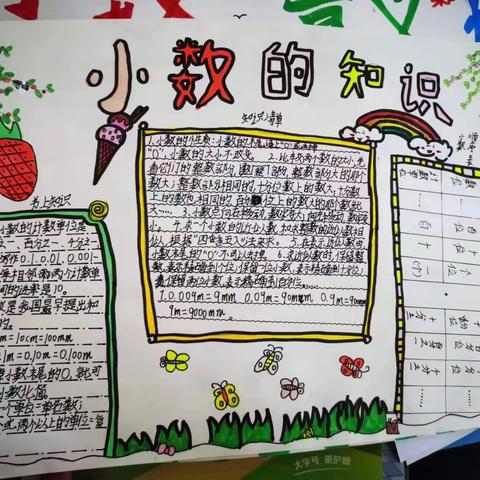 小数的知识
知识清单
1.小数的性质:小数的末尾添上"0"或去掉
"0",小数的大小不改变。 2.比较两个数的大小,先
看它们的整数部分,整数部分大的那个
数大;整数部分相同的,十分位上的数大,十分位
上的数也相同的,百分位上的数大的那个数就
大…… 3.小数点向右移动,
4.求一个小数的近似数
似,根据"四舍五入"法来求。 5.在表示近似数时
小数末尾的"0"不可以去掉。 6.求近似数时,保留整
数,表示精确到个位;保留一位小数,表示精确到十分位;
保留两位小数,表示精确到百分位……
7. 0.009m=9mm 0.09m=90mm 0.9m=900mm
9m=9000mm……
书上知识
小数的计数单位是
之一、百分之一、千分之
写作0.1、0.01、0.001
每相邻两个计数单
间的进率是10。
是我国最早提出和
的。
m=10cm=100mm
.1m=0.10m=0.100m
小数末尾的0,就可
小数化简。
一个单位=单名数;
式,两个以上的单位=复
数位
计数单位
……
百位
百
十位
十
个位
一(个)
十分位
十分之一
百分位
百分之一
千分位
千分之一
……
大学号 更护眼